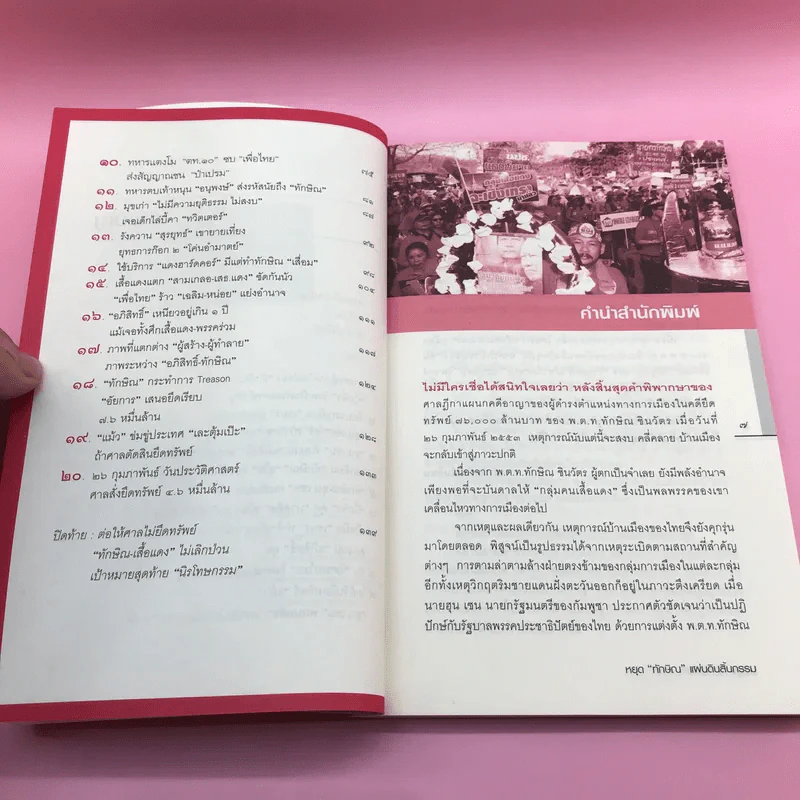 ๑๐. ทหารแตงโม "ตท.๑๐" ซบ "เพื่อไทย"
ส่งสัญญาณชน "ป๋าเปรม" ๗๕
๑๑. ทหารตบเท้าหนุน "อนุพงษ์" ส่งรหัสนัยถึง "ทักษิณ" ๘๑
๑๒. มุขเก่า "ไม่มีความยุติธรรม ไม่สงบ"
เจอเด็กไล่บี้คา "ทวิตเตอร์" ๘๗
๑๓. รังควาน "สุรยุทธ์" เขายายเที่ยง
ยุทธการก๊อก ๒ "โค่นอำมาตย์" ๙๒
๑๔. ใช้บริการ "แดงฮาร์ดคอร์" มีแต่ทำทักษิณ "เสื่อม" ๙๘
๑๕. เสื้อแดงแตก "สามเกลอ-เสธ.แดง" ซัดกันนัว
"เพื่อไทย" ร้าว "เฉลิม-หน่อย" แย่งอำนาจ ๑๐๔
๑๖. "อภิสิทธิ์" เหนียวอยู่เกิน ๑ ปี
แม้เจอทั้งศึกเสื้อแดง-พรรคร่วม ๑๑๑
๑๗. ภาพที่แตกต่าง "ผู้สร้าง-ผู้ทำลาย"
ภาพระหว่าง "อภิสิทธิ์-ทักษิณ" ๑๑๗
๑๘. "ทักษิณ" กระทำการ Treason
"อัยการ" เสนอยึดเรียบ
๗.๖ หมื่นล้าน ๑๒๔
๑๙. "แม้ว" ข่มขู่ประเทศ "เละตุ้มเป๊ะ"
ถ้าศาลตัดสินยึดทรัพย์ ๑๒๘
๒๐. ๒๖ กุมภาพันธ์ วันประวัติศาสตร์
ศาลสั่งยึดทรัพย์ ๔.๖ หมื่นล้าน ๑๓๓
ปิดท้าย : ต่อให้ศาลไม่ยึดทรัพย์
"ทักษิณ-เสื้อแดง" ไม่เลิกป่วน
เป้าหมายสุดท้าย "นิรโทษกรรม" ๑๓๙
คำนำสำนักพิมพ์
ไม่มีใครเชื่อได้สนิทใจเลยว่า หลังสิ้นสุดคำพิพากษาของ
ศาลฎีกาแผนกคดีอาญาของผู้ดำรงตำแหน่งทางการเมืองในคดียึด
ทรัพย์ ๗๖,๐๐๐ ล้านบาท ของ พ.ต.ท.ทักษิณ ชินวัตร เมื่อวันที่
๒๖ กุมภาพันธ์ ๒๕๕๓ เหตุการณ์นับแต่นี้จะสงบ คลี่คลาย บ้านเมือง
จะกลับเข้าสู่ภาวะปกติ
๗
เนื่องจาก พ.ต.ท.ทักษิณ ชินวัตร ผู้ตกเป็นจำเลย ยังมีพลังอำนาจ
เพียงพอที่จะบันดาลให้ "กลุ่มคนเสื้อแดง" ซึ่งเป็นพลพรรคของเขา
เคลื่อนไหวทางการเมืองต่อไป
จากเหตุและผลเดียวกัน เหตุการณ์บ้านเมืองของไทยจึงยังคุกรุ่น
มาโดยตลอด พิสูจน์เป็นรูปธรรมได้จากเหตุระเบิดตามสถานที่สำคัญ
ต่างๆ การตามล่าตามล้างฝ่ายตรงข้ามของกลุ่มการเมืองในแต่ละกลุ่ม
อีกทั้งเหตุวิกฤตริมชายแดนฝั่งตะวันออกก็อยู่ในภาวะตึงเครียด เมื่อ
นายฮุน เซน นายกรัฐมนตรีของกัมพูชา ประกาศตัวชัดเจนว่าเป็นปฏิ
ปักษ์กับรัฐบาลพรรคประชาธิปัตย์ของไทย ด้วยการแต่งตั้ง พ.ต.ท.ทักษิณ
หยุด "ทักษิณ" แผ่นดินสิ้นกรรม